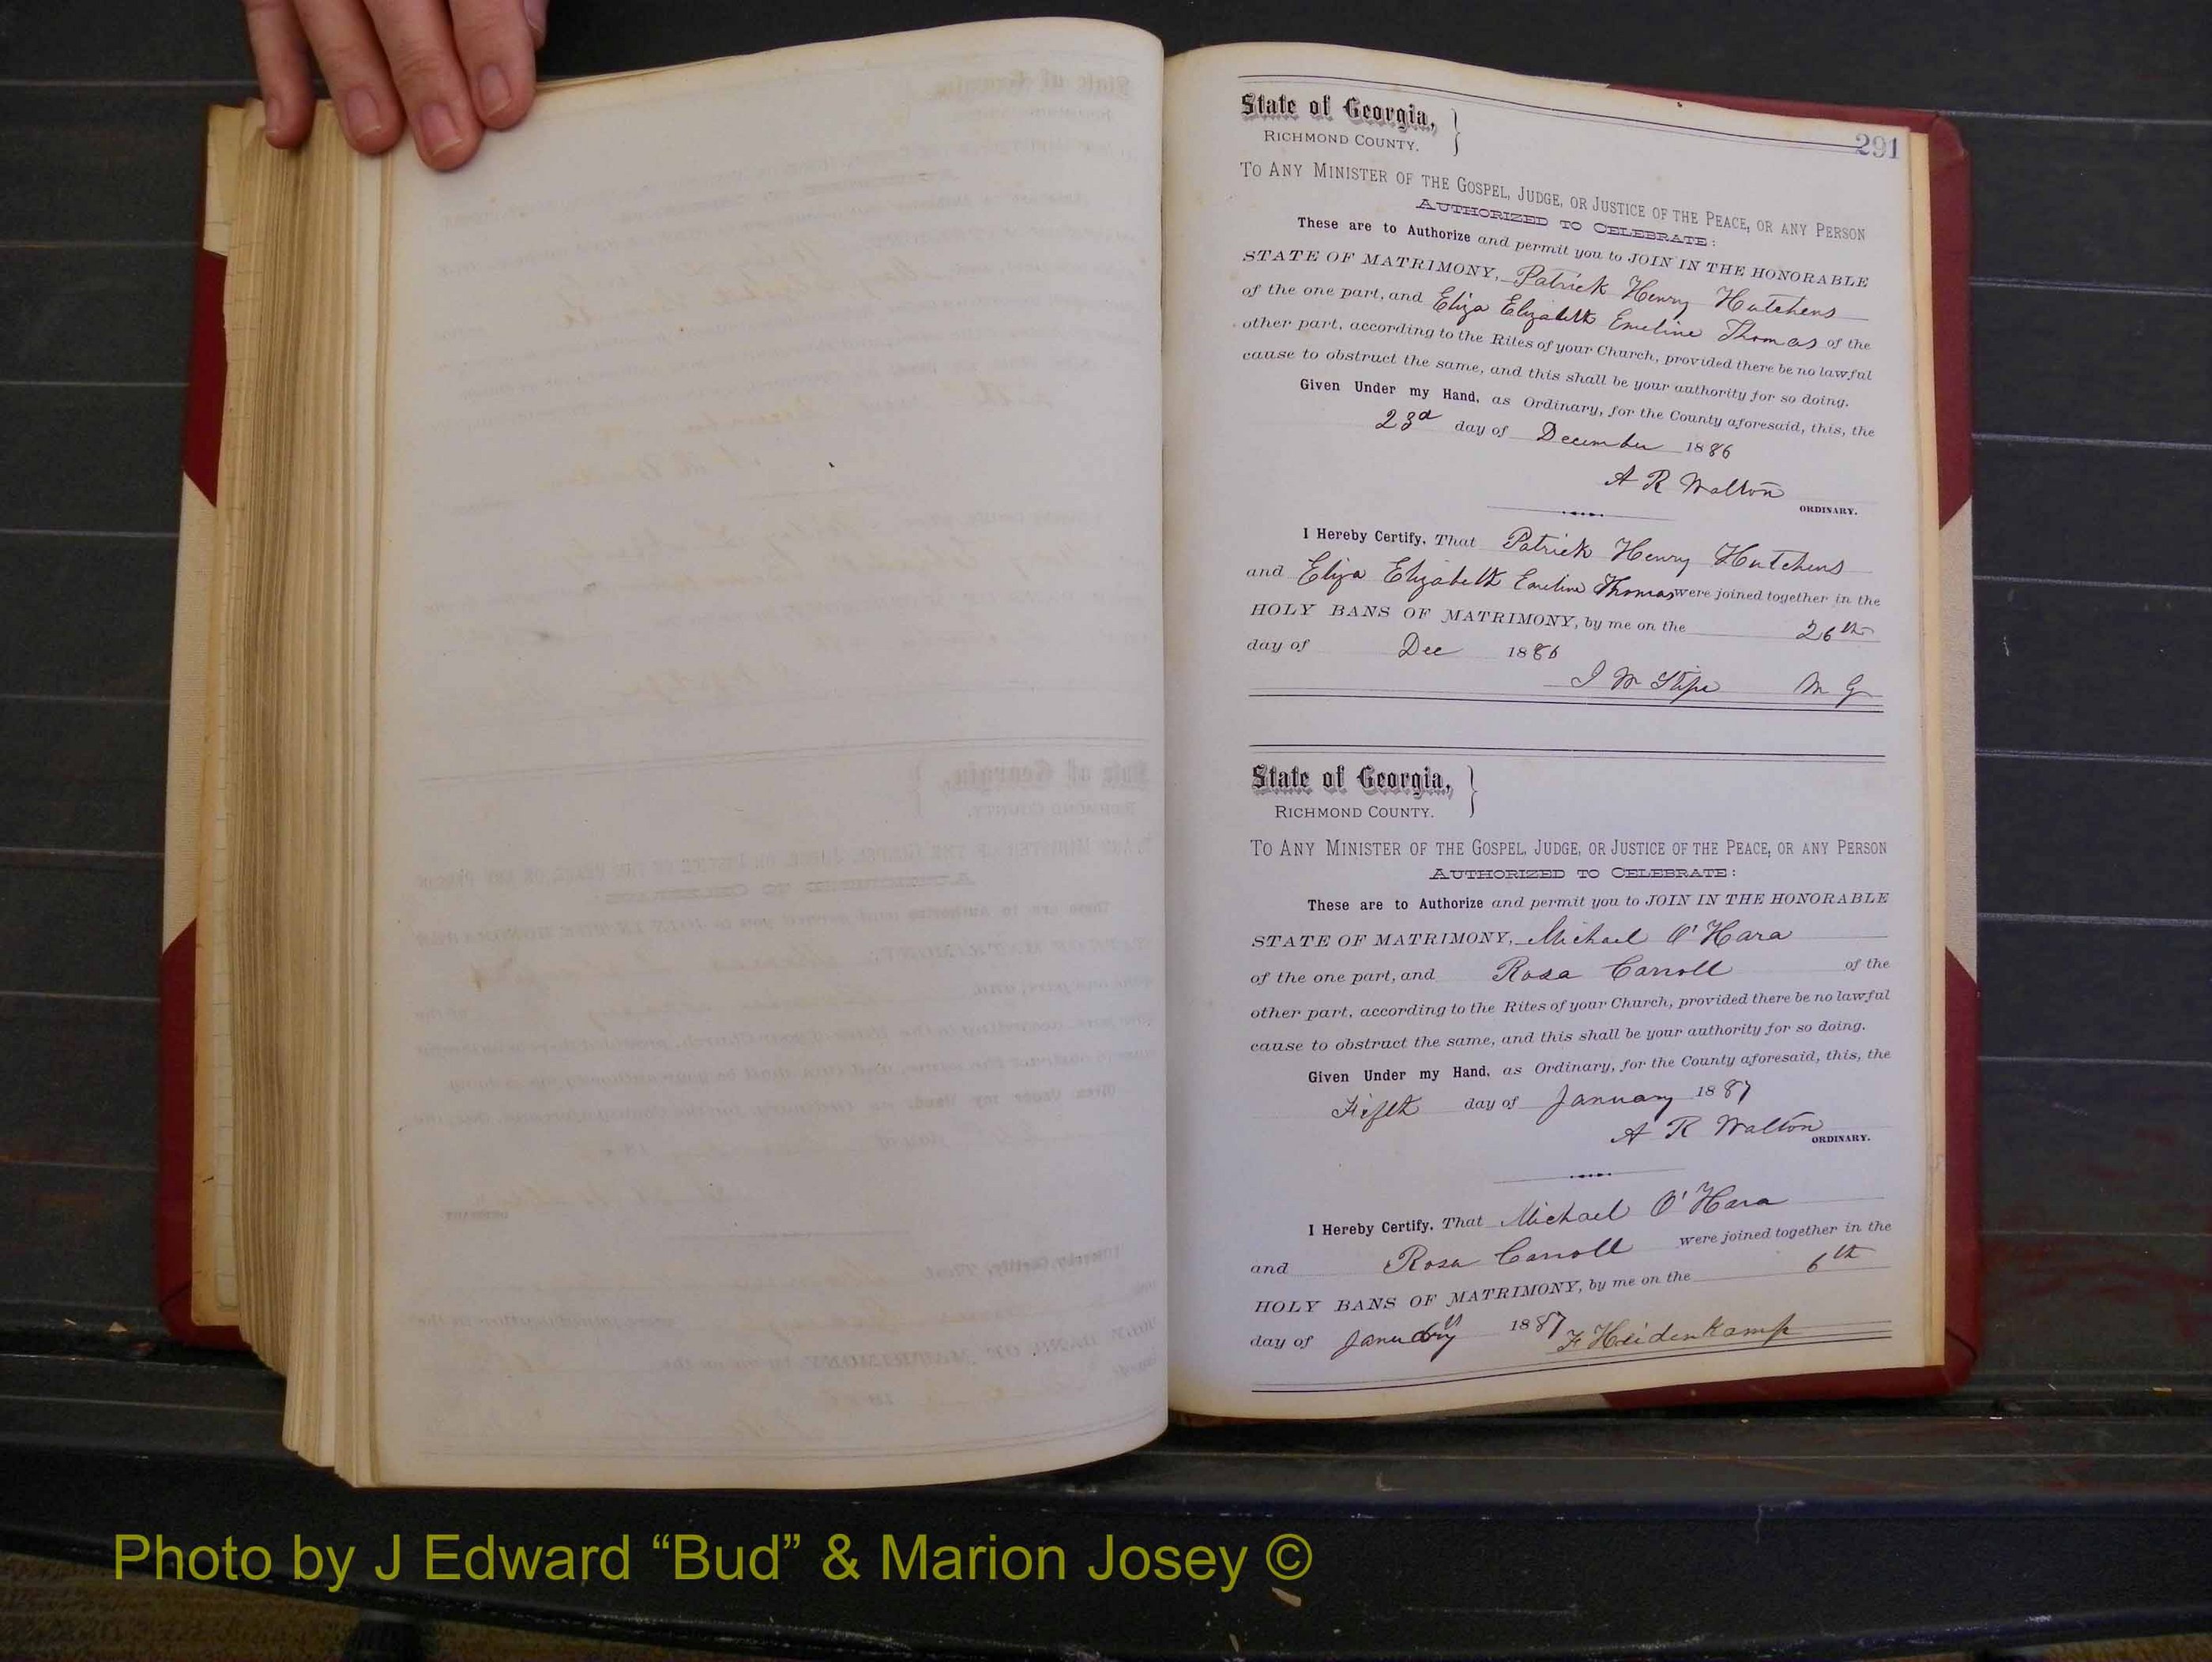 291
State of Georgia,
RICHMOND COUNTY.
TO ANY MINISTER OF THE GOSPEL, JUDGE, OR JUSTICE OF THE PEACE, OR ANY PERSON
AUTHORIZED TO CELEBRATE:
These are to Authorize and permit you to JOIN IN THE HONORABLE
STATE OF MATRIMONY, Patrick Henry Hutchens
of the one part, and Eliza Elizabeth Emeline Thomas of the
other part, according to the Rites of your Church, provided there be no lawful
cause to obstruct the same, and this shall be your authority for so doing.
Given Under my Hand, as Ordinary, for the County aforesaid, this, the
23d day of December 1886
A R Walton
ORDINARY.
I Hereby Certify, That Patrick Henry Hutchens
and Eliza Elizabeth Emeline Thomas were joined together in the
HOLY BANS OF MATRIMONY, by me on the 26th
day of Dec 1886
J W Stipe M G
State of Georgia,
RICHMOND COUNTY.
TO ANY MINISTER OF THE GOSPEL, JUDGE, OR JUSTICE OF THE PEACE, OR ANY PERSON
AUTHORIZED TO CELEBRATE:
These are to Authorize and permit you to JOIN IN THE HONORABLE
STATE OF MATRIMONY, Michael O'Hara
of the one part, and Rosa Carroll of the
other part, according to the Rites of your Church, provided there be no lawful
cause to obstruct the same, and this shall be your authority for so doing.
Given Under my Hand, as Ordinary, for the County aforesaid, this, the
Fifth day of January 1887
A R Walton
ORDINARY.
I Hereby Certify, That Michael O'Hara
and Rosa Carroll were joined together in the
HOLY BANS OF MATRIMONY, by me on the 6th
day of January 1887 F Heidenkamp
Photo by J Edward “Bud” & Marion Josey ©